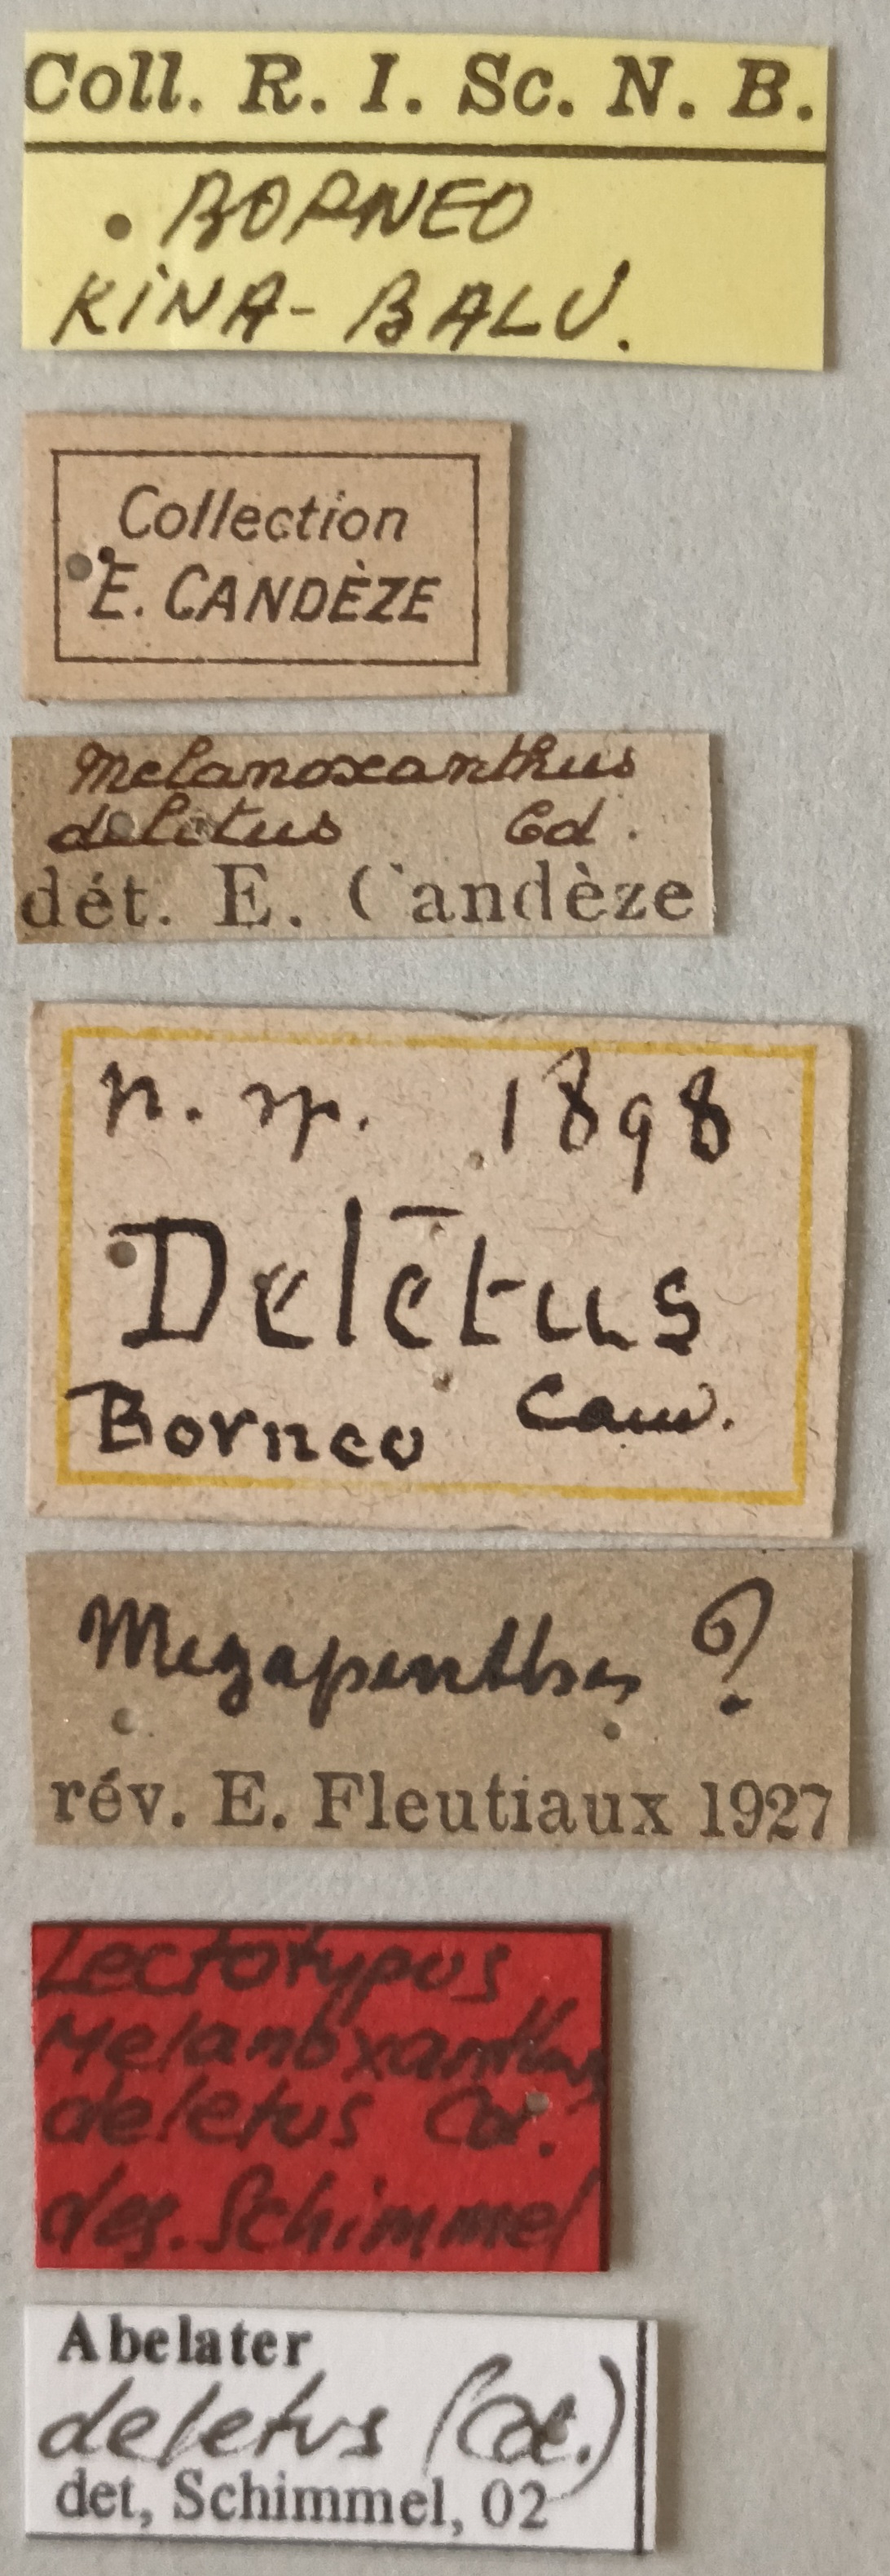 Coll. R. I. Sc. N. B.
BORNEO
KINA-BALU.
Collection
E. CANDÈZE
Melanoxanthus
deletus Cd.
dét. E. Candèze
n. sp. 1898
Delētus
Borneo Cand.
Megapenthes ?
rév. E. Fleutiaux 1927
Lectotypus
Melanoxanthus
deletus Cd.
des. Schimmel
Abelater
deletus (Cd.)
det, Schimmel, 02